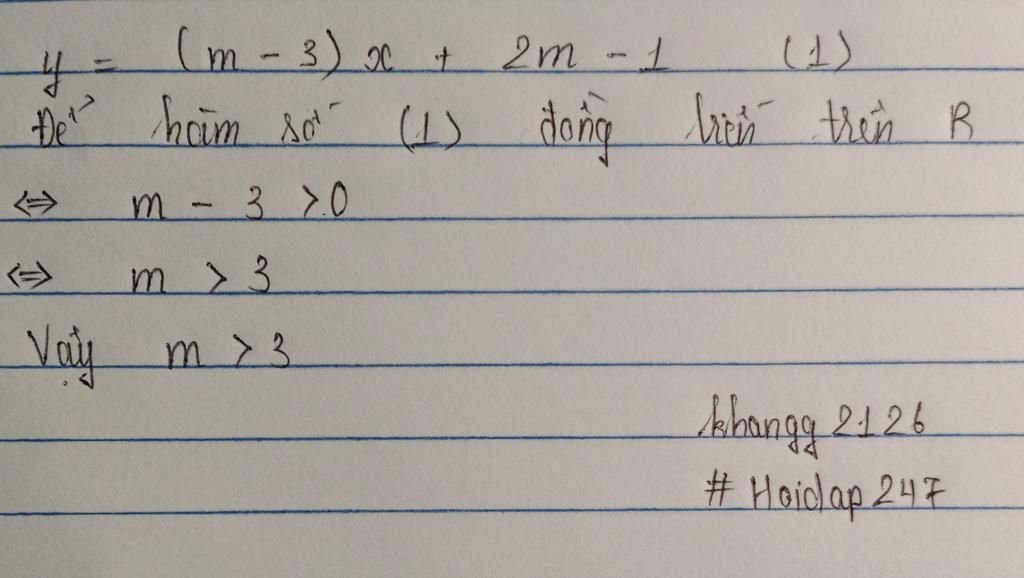 y = (m - 3) x + 2m - 1 (1)
Để hàm số (1) đồng biến trên R
⇔ m - 3 > 0
⇔ m > 3
Vậy m > 3
khangg 2126
# Hoidap 247